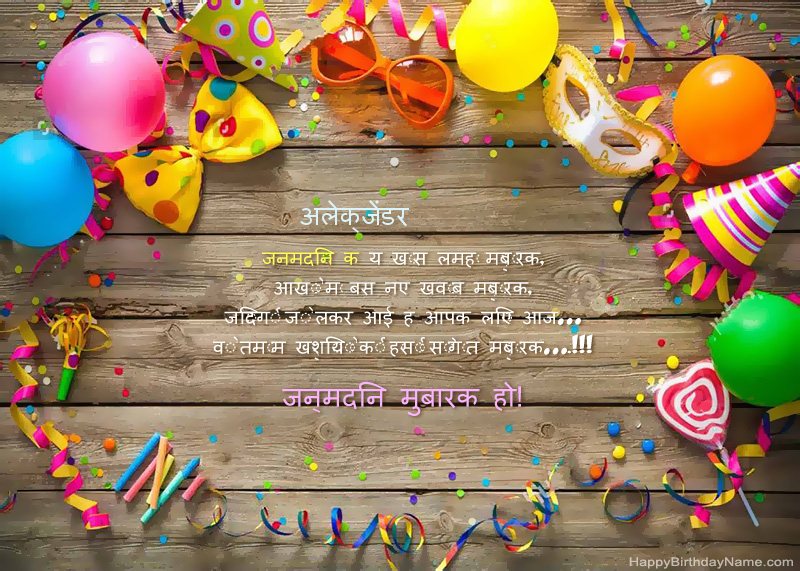 अलेक्जेंडर
जनमदिन क य खास लमहा मबारक,
आखों में बसे नए खवाब मबारक,
जिंदगी जो लेकर आई ह आपके लिए आज...
वो तमाम खशियों की हसीं सौगात मबारक...!!!
जन्मदिन मुबारक हो!
HappyBirthdayName.com